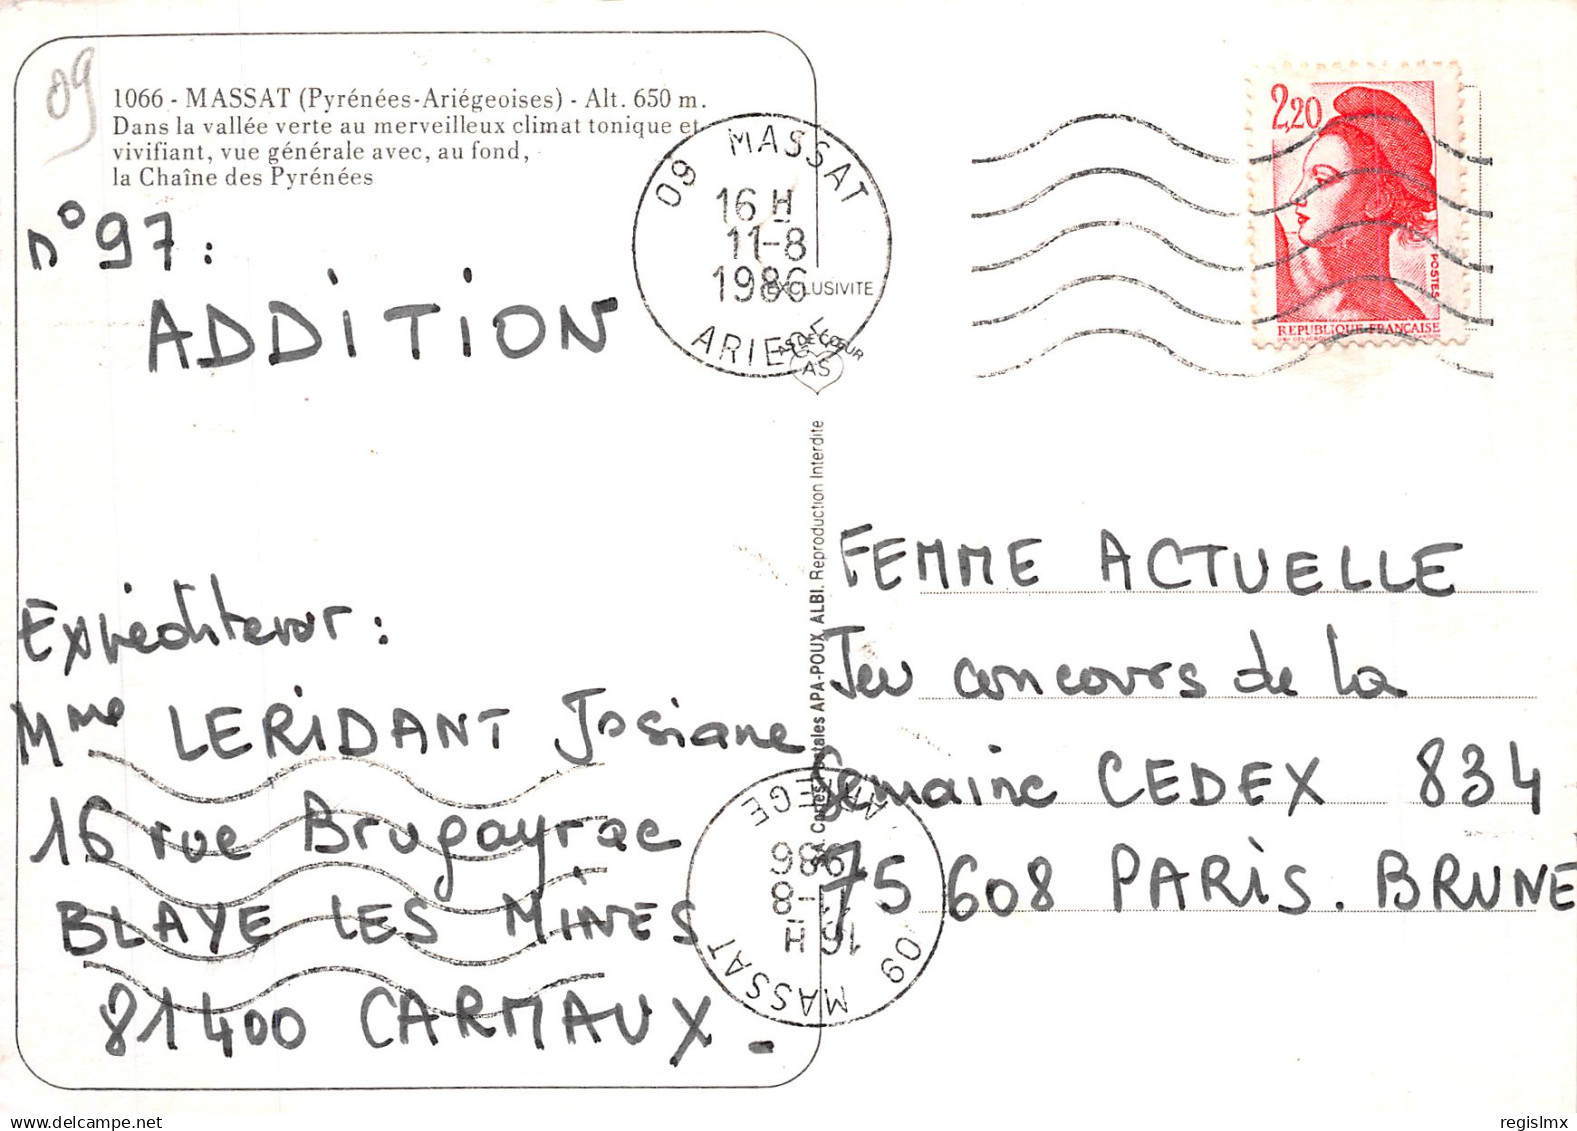 09
1066 - MASSAT (Pyrénées-Ariégeoises) - Alt. 650 m.
Dans la vallée verte au merveilleux climat tonique et
vivifiant, vue générale avec, au fond,
la Chaîne des Pyrénées
n° 97 :
ADDITION
Expéditeur :
Mme LERIDANT Josiane
16 rue Brugayrac
BLAYE LES MINES
81400 CARMAUX -
09 MASSAT
16 H
11-8
1986
ARIEGE
EXCLUSIVITE
AS DE CŒUR
AS
S.A. Cartes Postales APA-POUX, ALBI. Reproduction Interdite
2,20
POSTES
REPUBLIQUE FRANÇAISE
FEMME ACTUELLE
Jeu concours de la
Semaine CEDEX 834
75 608 PARIS. BRUNE
09 MASSAT
16 H
11-8
1986
ARIEGE
regislmx